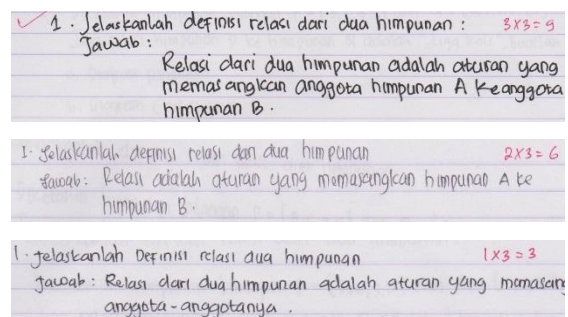 1. Jelaskanlah definisi relasi dari dua himpunan : 3x3=9
Jawab :
Relasi dari dua himpunan adalah aturan yang
memasangkan anggota himpunan A keanggota
himpunan B.
1. Jelaskanlah definisi relasi dan dua himpunan 2x3=6
Jawab : Relasi adalah aturan yang memasangkan himpunan A ke
himpunan B.
1. Jelaskanlah Definisi relasi dua himpunan 1x3=3
Jawab : Relasi dari dua himpunan adalah aturan yang memasang
anggota-anggotanya.